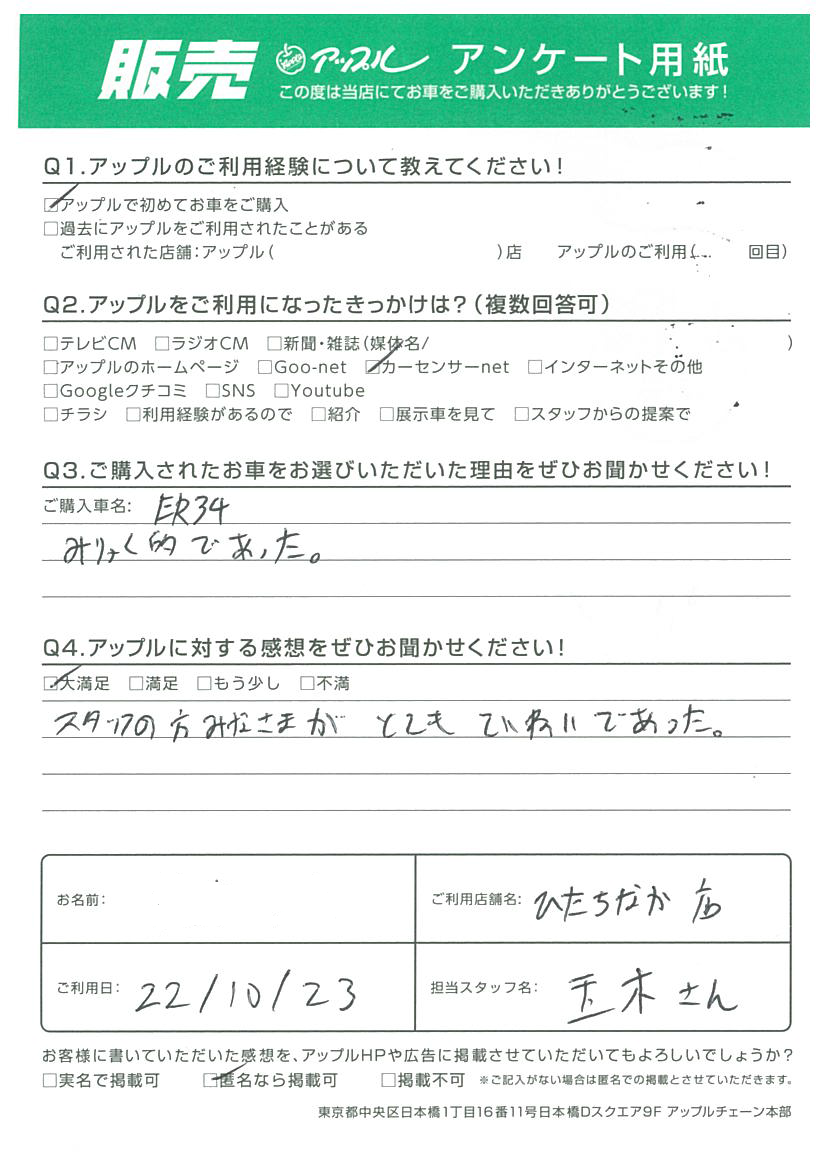 販売 アップル アンケート用紙
この度は当店にてお車をご購入いただきありがとうございます!
Q1.アップルのご利用経験について教えてください!
☑アップルで初めてお車をご購入
□過去にアップルをご利用されたことがある
ご利用された店舗:アップル( )店 アップルのご利用( 回目)
Q2.アップルをご利用になったきっかけは?(複数回答可)
□テレビCM □ラジオCM □新聞・雑誌(媒体名/ )
□アップルのホームページ □Goo-net ☑カーセンサーnet □インターネットその他
□Googleクチコミ □SNS □Youtube
□チラシ □利用経験があるので □紹介 □展示車を見て □スタッフからの提案で
Q3.ご購入されたお車をお選びいただいた理由をぜひお聞かせください!
ご購入車名: ER34
みりょく的であった。
Q4.アップルに対する感想をぜひお聞かせください!
☑大満足 □満足 □もう少し □不満
スタッフの方みなさまが とても ていねいであった。
お名前:
ご利用店舗名: ひたちなか店
ご利用日: 22/10/23
担当スタッフ名: 玉木さん
お客様に書いていただいた感想を、アップルHPや広告に掲載させていただいてもよろしいでしょうか?
□実名で掲載可 ☑匿名なら掲載可 □掲載不可 ※ご記入がない場合は匿名での掲載とさせていただきます。
東京都中央区日本橋1丁目16番11号日本橋Dスクエア9F アップルチェーン本部